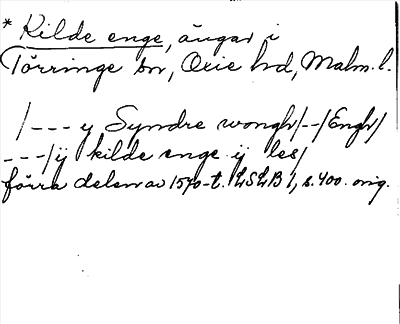 * Kilde enge, ängar i
Törringe sn, Oxie hd, Malm. l.
/--- y Syndre wongh/--/Engh/
---/ÿ kilde enge ÿ les/
förra delen av 1570-t. LSLB 1, s. 400. orig.